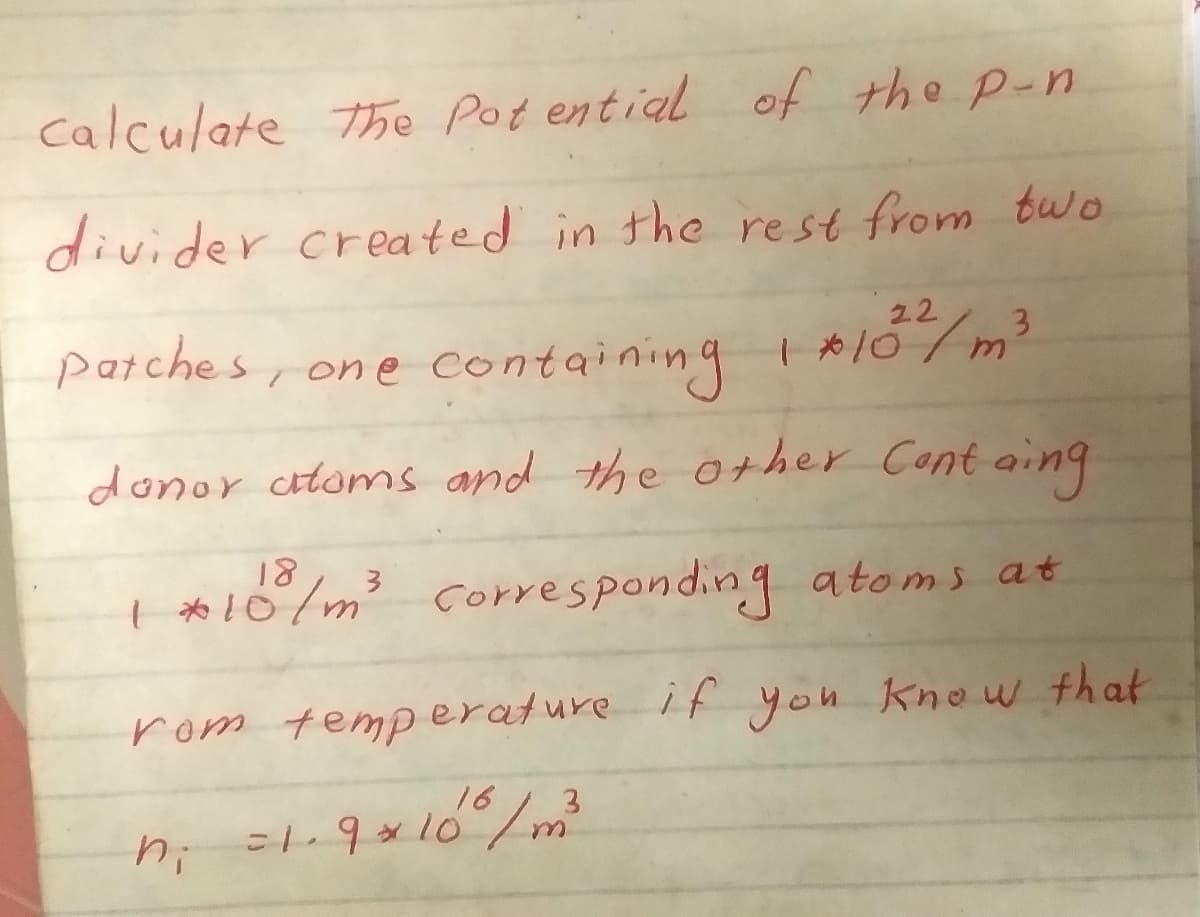 calculate The Potential of the p-n
divider created in the rest from two
patches, one containing 1 *10²²/m³
donor atoms and the other Containg
1 *10¹⁸/m³ corresponding atoms at
rom temperature if you know that
nᵢ =1.9*10¹⁶/m³